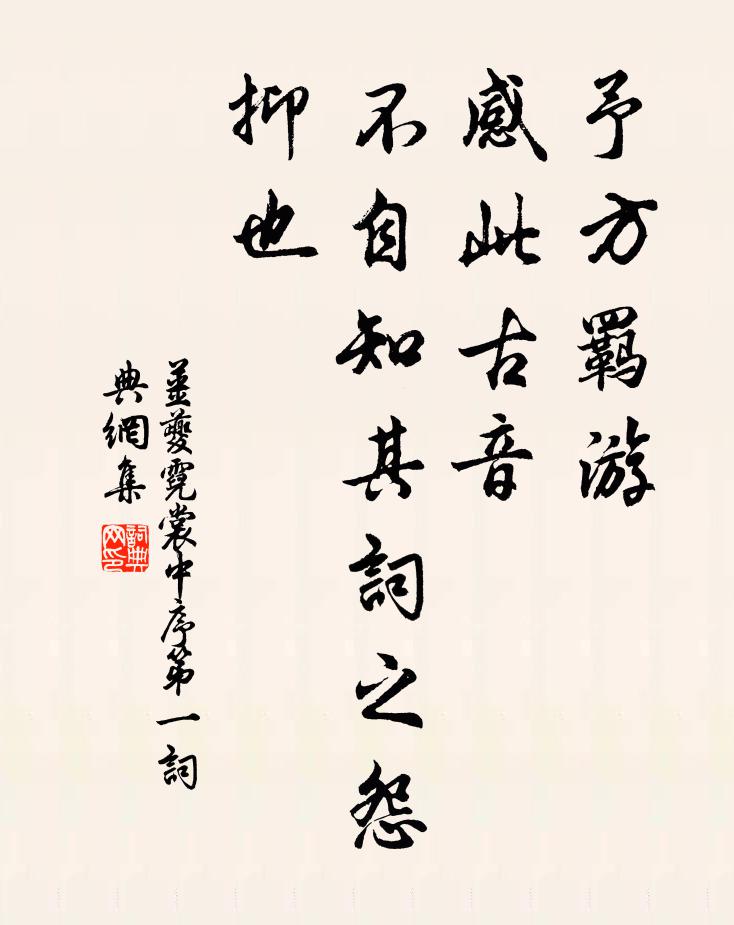 予方羈游
感此古音
不自知其詞之怨
抑也
姜夔霓裳中序第一詞
典網集
詞典
网印